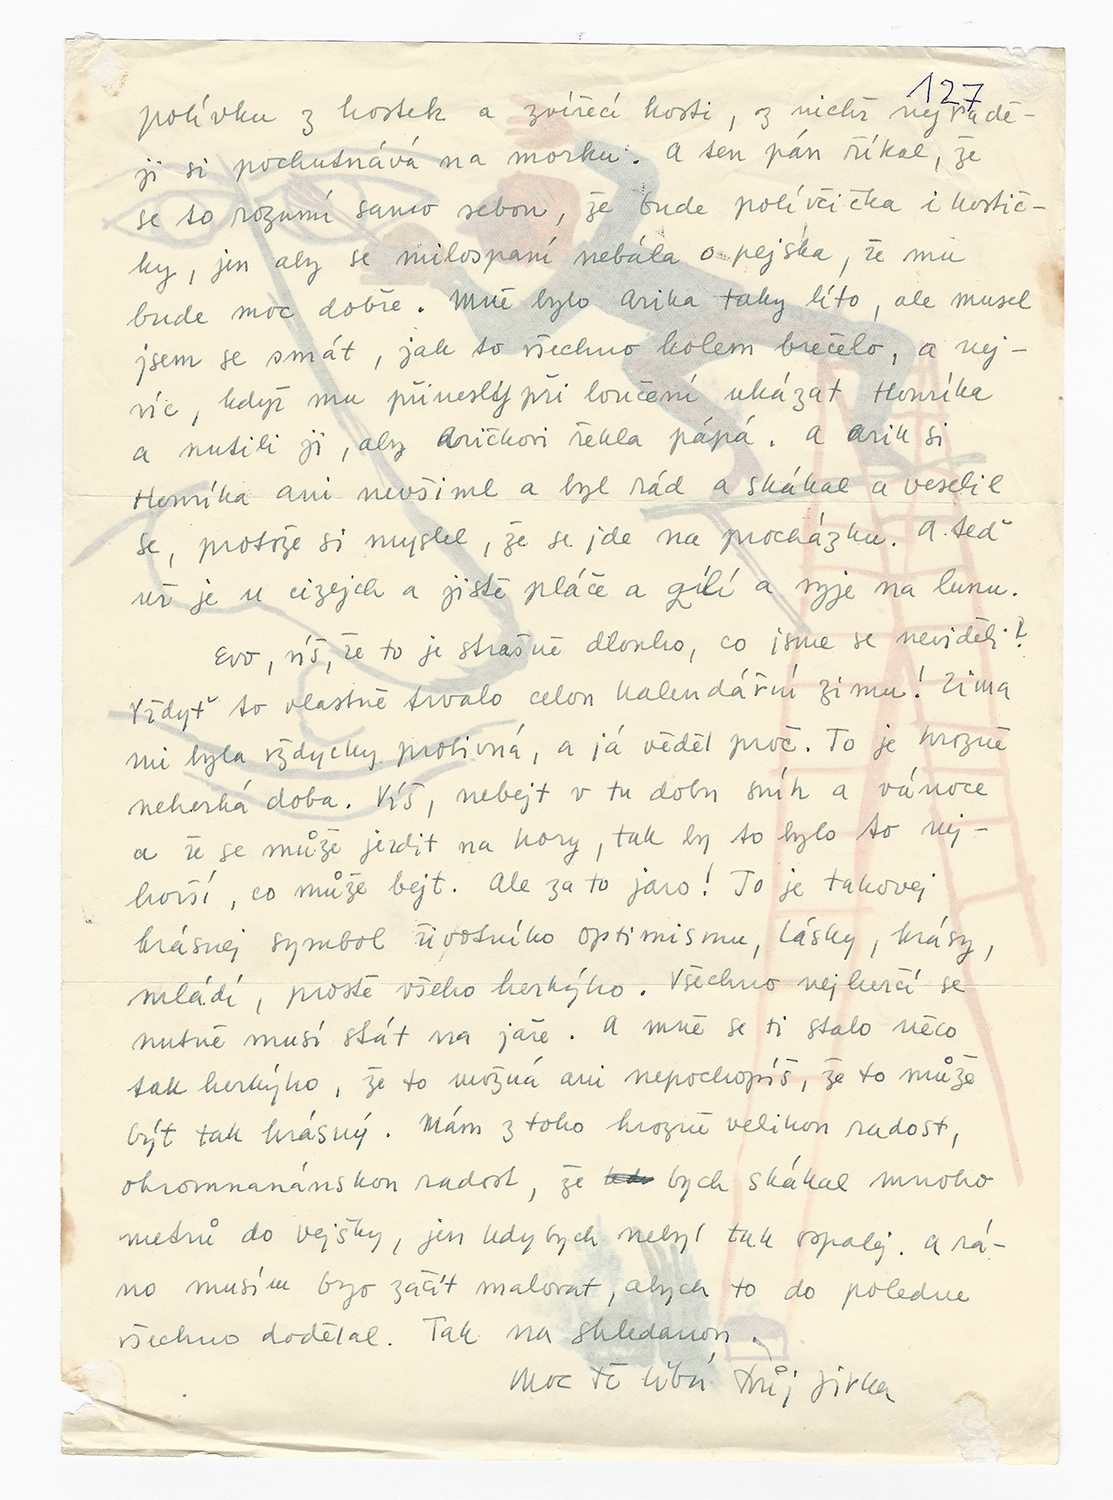 127
polívku z kostek a zvířecí kosti, z nichž nejradě-
ji si pochutnává na morku. A ten pán říkal, že
se to rozumí samo sebou, že bude polívčička i kostič-
ky, jen aby se milospaní nebála o pejska, že mu
bude moc dobře. Mně bylo Arika taky líto, ale musel
jsem se smát, jak to všechno kolem brečelo, a nej-
víc, když mu přinesly při loučení ukázat Henríka
a nutili ji, aby Aričkovi řekla pápá. A Arik si
Henríka ani nevšiml a byl rád a skákal a veselil
se, protože si myslel, že se jde na procházku. A teď
už je u cizejch a jistě pláče a vyje na lunu.
Evo, víš, že to je strašně dlouho, co jsme se neviděli?
Vždyť to vlastně trvalo celou kalendářní zimu! Zima
mi byla vždycky protivná, a já věděl proč. To je hrozně
neherká doba. Víš, nebejt v tu dobu sníh a vánoce
a že se může jezdit na hory, tak by to bylo to nej-
horší, co může bejt. Ale za to jaro! To je takovej
krásnej symbol životního optimismu, lásky, krásy,
mládí, prostě všeho herkýho. Všechno nejherčí se
nutně musí stát na jaře. A mně se ti stalo něco
tak herkýho, že to možná ani nepochopíš, že to může
být tak krásný. Mám z toho hrozně velikou radost,
ohromnanánskou radost, že bych skákal mnoho
metrů do vejšky, jen kdybych nebyl tak ospalej. A rá-
no musím brzo začít malovat, abych to do poledne
všechno dodělal. Tak na shledanou.
Moc tě líbá tvůj Jirka